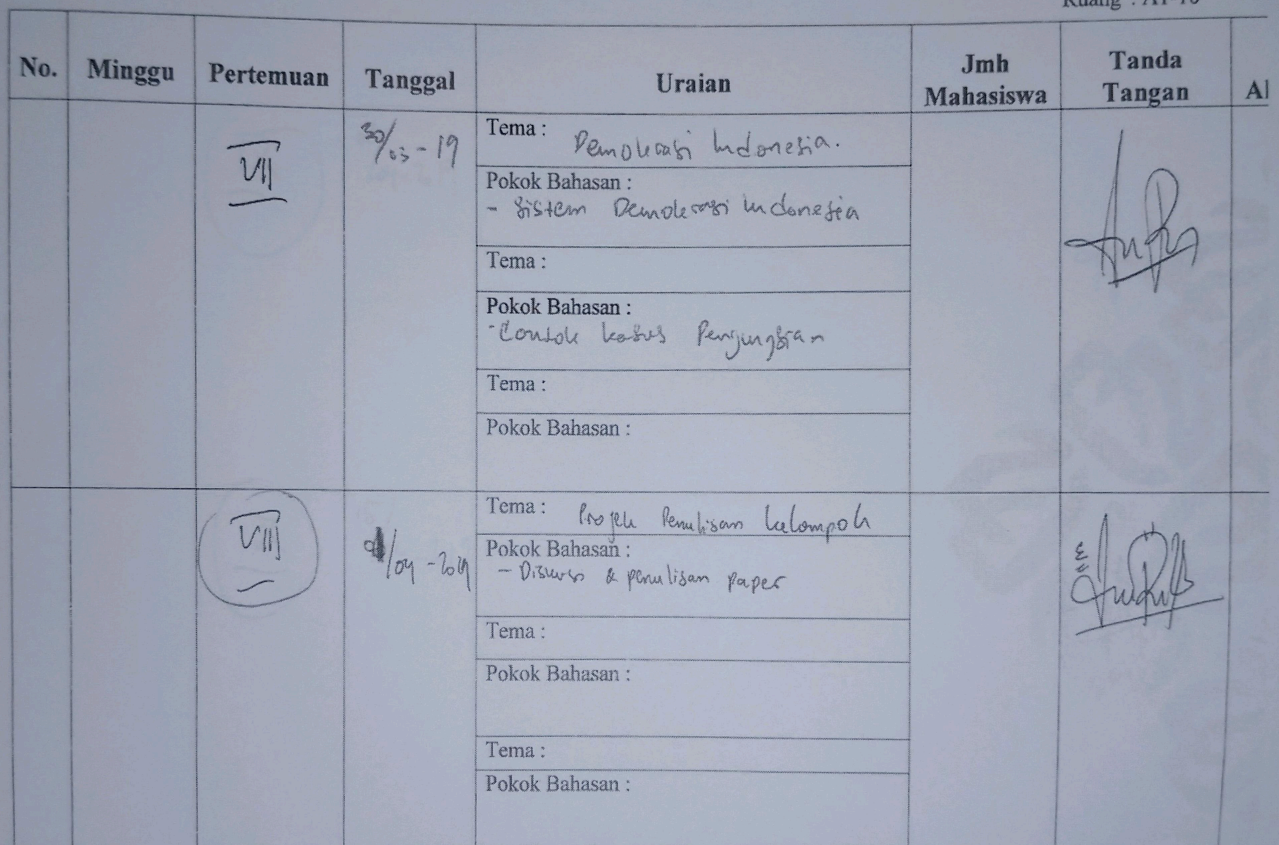 Ruang : A1-10
No. Minggu Pertemuan Tanggal Uraian Jmh Mahasiswa Tanda Tangan
VII 30/03-19 Tema : Demokrasi Indonesia.
Pokok Bahasan :
- Sistem Demokrasi Indonesia
Tema :
Pokok Bahasan :
- Contoh kasus Pengungsian
Tema :
Pokok Bahasan :
VIII /04-2019 Tema : Projek Penulisan kelompok
Pokok Bahasan :
- Diskusi & penulisan paper
Tema :
Pokok Bahasan :
Tema :
Pokok Bahasan :